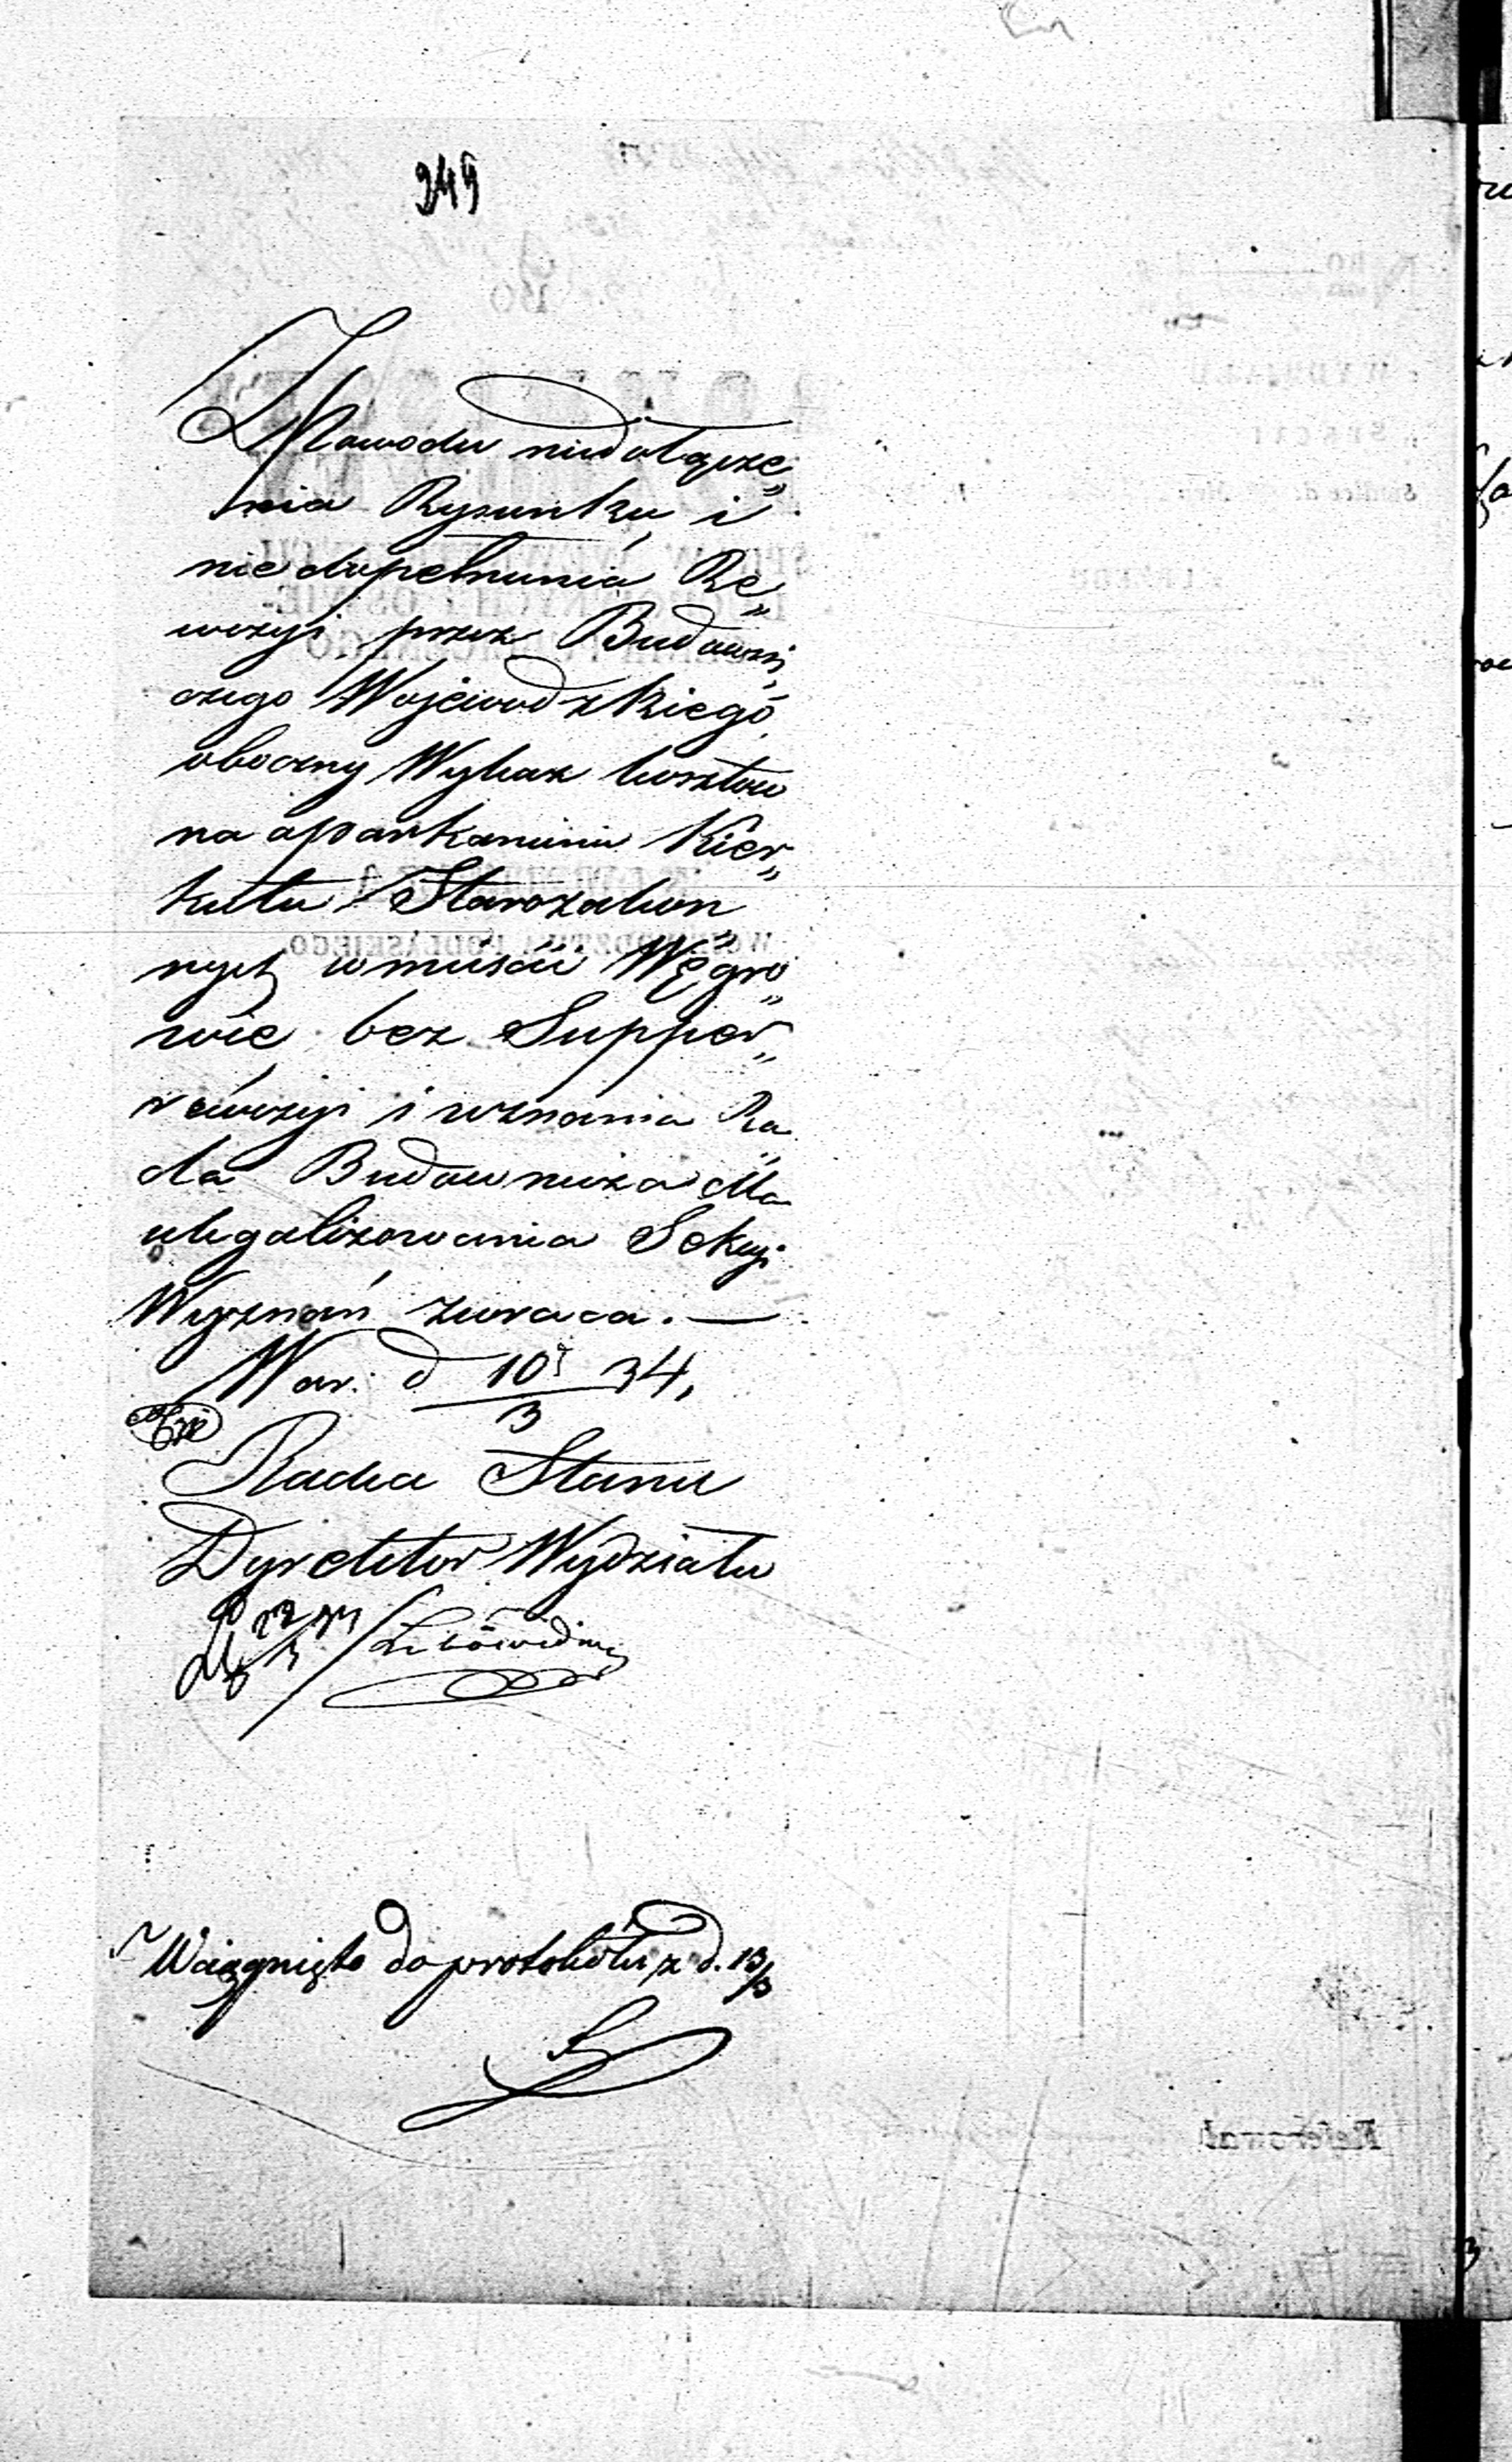 249
Z Powodu niedołącze„
nia Rysunku, i
niedopełnienia Re„
wizyi przez Budowni„
czego Wojewodzkiego,
oboczny Wykaz kosztow
na oparkanienie Kier„
kutu Starozakon„
nych w mieście Węgro„
wie, bez Supper„
rewizyi i uznania Ra„
da Budownicza dla
ulegalizowania Sekcyi
Wyznań zwraca. —
War: d 10/3 34,
Radca Stanu
Dyrektor Wydziału
Wciągnięto do protokółu z d. 13/3